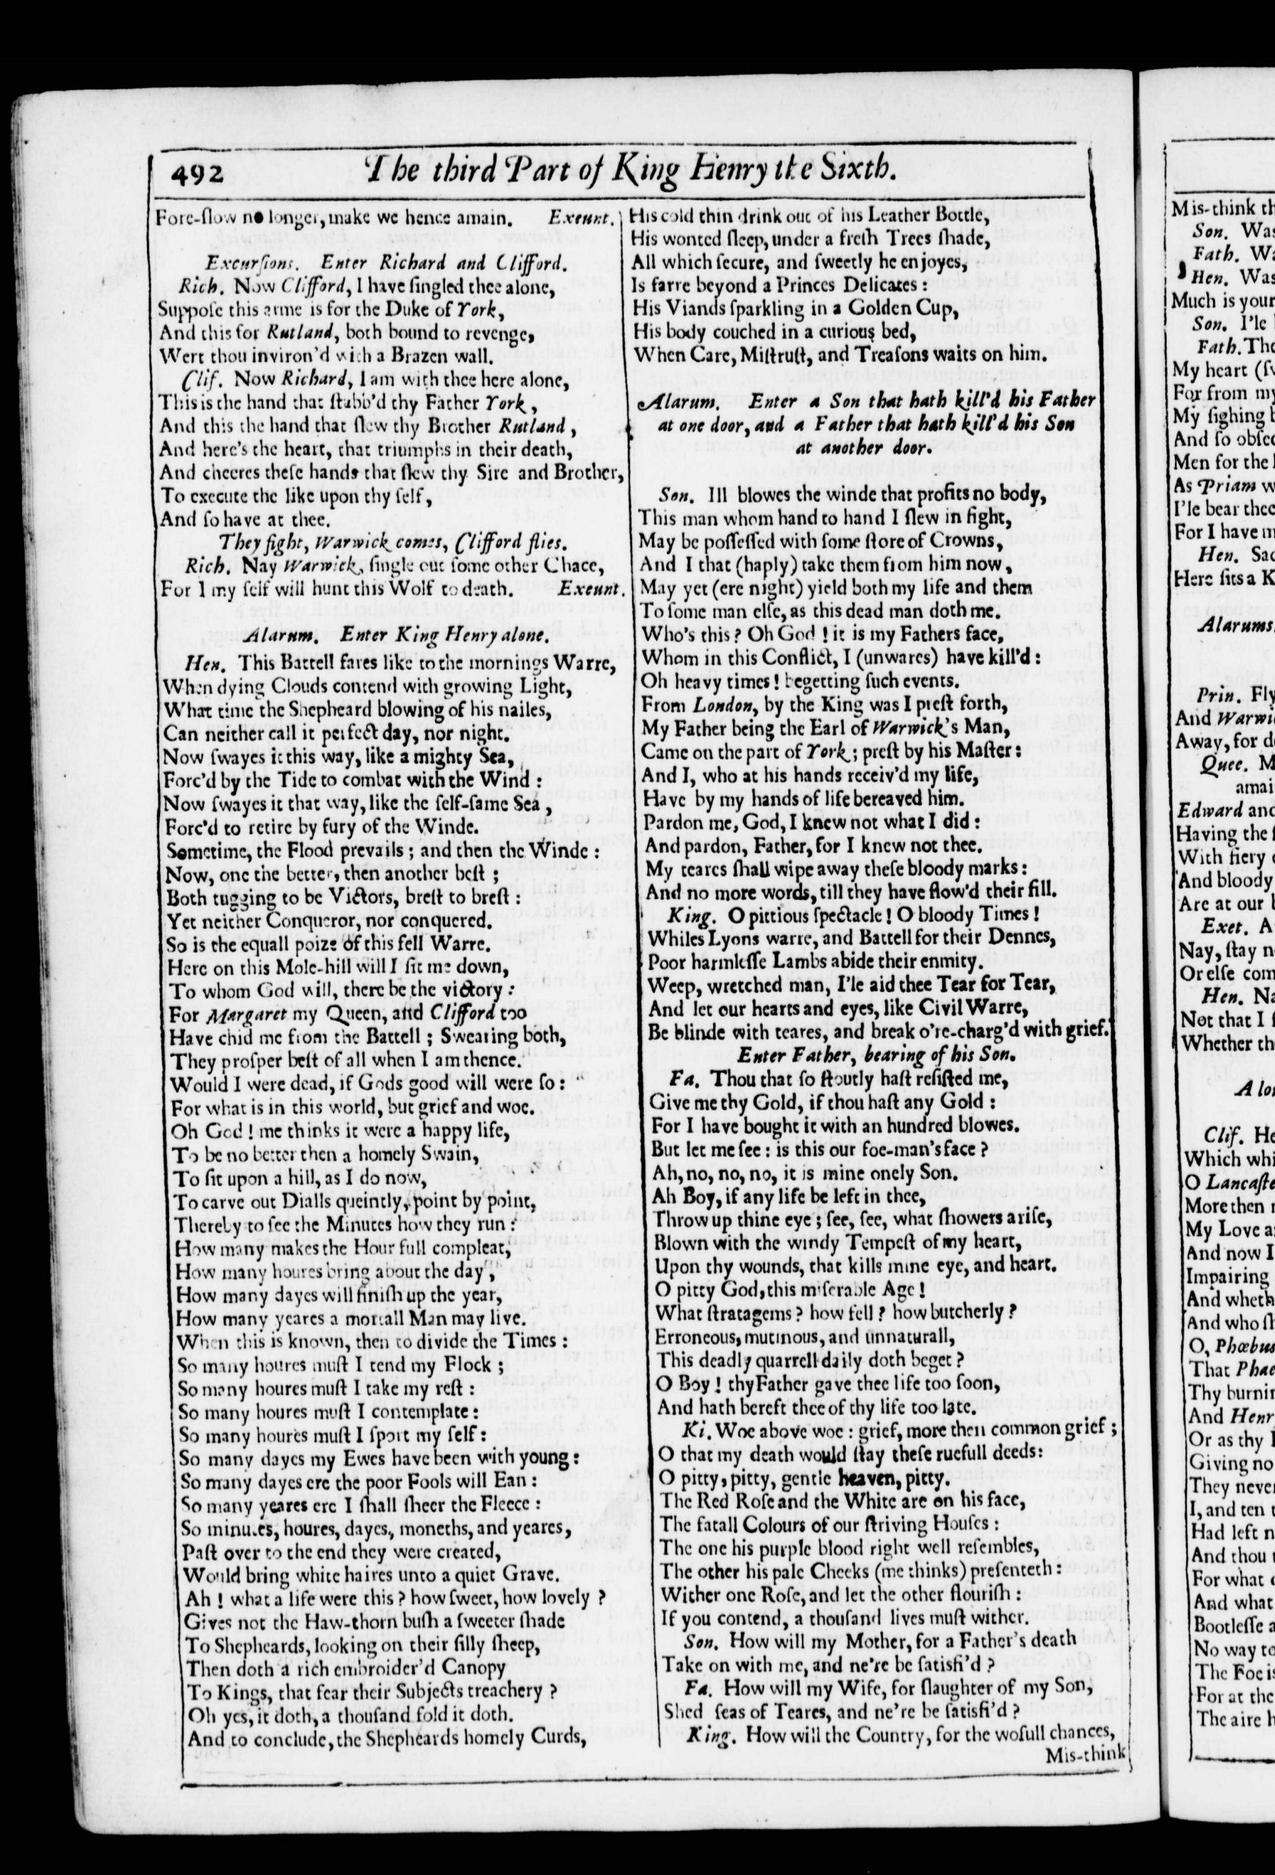 492 The third Part of King Henry the Sixth.
Fore-slow no longer, make we hence amain. Exeunt.
Excursions. Enter Richard and Clifford.
Rich. Now Clifford, I have singled thee alone,
Suppose this arme is for the Duke of York,
And this for Rutland, both bound to revenge,
Wert thou inviron'd with a Brazen wall.
Clif. Now Richard, I am with thee here alone,
This is the hand that stabb'd thy Father York,
And this the hand that slew thy Brother Rutland,
And here's the heart, that triumphs in their death,
And cheeres these hands that slew thy Sire and Brother,
To execute the like upon thy self,
And so have at thee.
They fight, Warwick comes, Clifford flies.
Rich. Nay Warwick, single out some other Chace,
For I my self will hunt this Wolf to death. Exeunt.
Alarum. Enter King Henry alone.
Hen. This Battell fares like to the mornings Warre,
When dying Clouds contend with growing Light,
What time the Shepheard blowing of his nailes,
Can neither call it perfect day, nor night.
Now swayes it this way, like a mighty Sea,
Forc'd by the Tide to combat with the Wind:
Now swayes it that way, like the self-same Sea,
Forc'd to retire by fury of the Winde.
Sometime, the Flood prevails; and then the Winde:
Now, one the better, then another best;
Both tugging to be Victors, brest to brest:
Yet neither Conqueror, nor conquered.
So is the equall poize of this fell Warre.
Here on this Mole-hill will I sit me down,
To whom God will, there be the victory:
For Margaret my Queen, and Clifford too
Have chid me from the Battell; Swearing both,
They prosper best of all when I am thence.
Would I were dead, if Gods good will were so:
For what is in this world, but grief and woe.
Oh God! me thinks it were a happy life,
To be no better then a homely Swain,
To sit upon a hill, as I do now,
To carve out Dialls queintly, point by point,
Thereby to see the Minutes how they run:
How many makes the Hour full compleat,
How many houres bring about the day,
How many dayes will finish up the year,
How many yeares a mortall Man may live.
When this is known, then to divide the Times:
So many houres must I tend my Flock;
So many houres must I take my rest:
So many houres must I contemplate:
So many houres must I sport my self:
So many dayes my Ewes have been with young:
So many dayes ere the poor Fools will Ean:
So many yeares ere I shall sheer the Fleece:
So minutes, houres, dayes, moneths, and yeares,
Past over to the end they were created,
Would bring white haires unto a quiet Grave.
Ah! what a life were this? how sweet, how lovely?
Gives not the Haw-thorn bush a sweeter shade
To Shepheards, looking on their silly sheep,
Then doth a rich embroider'd Canopy
To Kings, that fear their Subjects treachery?
Oh yes, it doth, a thousand fold it doth.
And to conclude, the Shepheards homely Curds,
His cold thin drink out of his Leather Bottle,
His wonted sleep, under a fresh Trees shade,
All which secure, and sweetly he enjoyes,
Is farre beyond a Princes Delicates:
His Viands sparkling in a Golden Cup,
His body couched in a curious bed,
When Care, Mistrust, and Treasons waits on him.
Alarum. Enter a Son that hath kill'd his Father
at one door, and a Father that hath kill'd his Son
at another door.
Son. Ill blowes the winde that profits no body,
This man whom hand to hand I slew in fight,
May be possessed with some store of Crowns,
And I that (haply) take them from him now,
May yet (ere night) yield both my life and them
To some man else, as this dead man doth me.
Who's this? Oh God! it is my Fathers face,
Whom in this Conflict, I (unwares) have kill'd:
Oh heavy times! begetting such events.
From London, by the King was I prest forth,
My Father being the Earl of Warwick's Man,
Came on the part of York, prest by his Master:
And I, who at his hands receiv'd my life,
Have by my hands of life bereaved him.
Pardon me, God, I knew not what I did:
And pardon, Father, for I knew not thee.
My teares shall wipe away these bloody marks:
And no more words, till they have flow'd their fill.
King. O pittious spectacle! O bloody Times!
Whiles Lyons warre, and Battell for their Dennes,
Poor harmlesse Lambs abide their enmity.
Weep, wretched man, I'le aid thee Tear for Tear,
And let our hearts and eyes, like Civil Warre,
Be blinde with teares, and break o're-charg'd with grief.
Enter Father, bearing of his Son.
Fa. Thou that so stoutly hast resisted me,
Give me thy Gold, if thou hast any Gold:
For I have bought it with an hundred blowes.
But let me see: is this our foe-man's face?
Ah, no, no, no, it is mine onely Son.
Ah Boy, if any life be left in thee,
Throw up thine eye; see, see, what showers arise,
Blown with the windy Tempest of my heart,
Upon thy wounds, that kills mine eye, and heart.
O pitty God, this miserable Age!
What stratagems? how fell? how butcherly?
Erroneous, mutinous, and unnaturall,
This deadly quarrell daily doth beget?
O Boy! thy Father gave thee life too soon,
And hath bereft thee of thy life too late.
Ki. Woe above woe: grief, more then common grief;
O that my death would stay these ruefull deeds:
O pitty, pitty, gentle heaven, pitty.
The Red Rose and the White are on his face,
The fatall Colours of our striving Houses:
The one his purple blood right well resembles,
The other his pale Cheeks (me thinks) presenteth:
Wither one Rose, and let the other flourish:
If you contend, a thousand lives must wither.
Son. How will my Mother, for a Father's death
Take on with me, and ne're be satisfi'd?
Fa. How will my Wife, for slaughter of my Son,
Shed seas of Teares, and ne're be satisfi'd?
King. How will the Country, for the wofull chances,
Mis-think
Mis-think
Son. Was
Fath.
Hen. Was
Much is your
Son. I'le
Fath.
My heart
For from my
My sighing
And so
Men for the
As Priam
I'le bear thee
For I have
Hen.
Here sits a
Alarums.
Prin. Fly
And
Away, for
Quee.
Edward and
Having the
With fiery
And bloody
Are at our
Exet.
Nay, stay
Or else
Hen.
Not that I
Whether
Clif.
Which
O
More then
My Love
And now I
Impairing
And
And who
O, Phœbus
That
Thy
And
Or as thy
Giving no
They never
I, and ten
Had left
And thou
For what
And what
Bootlesse
No way to
The Foe is
For at the
The aire